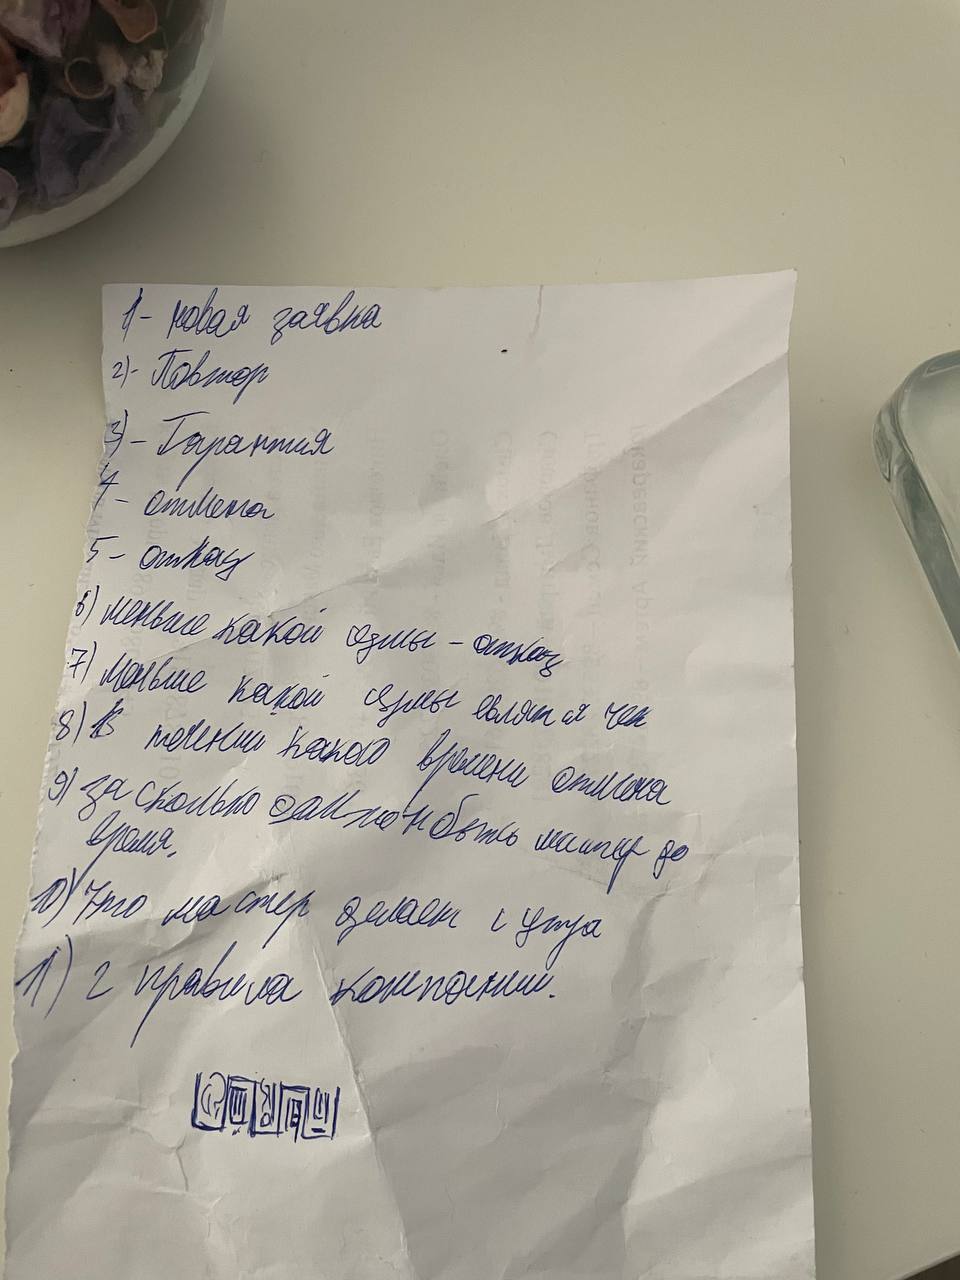 1- новая заявка
2)- Повтор
3)- Гарантия
4- отмена
5- отказ
6) меньше какой суммы - отказ
7) меньше какой суммы явлентся чек
8) В течении какого времени отмена
9) за сколько должон быть мастер до
время.
10) Что мастер делает с утра
11) 2 правила компании.